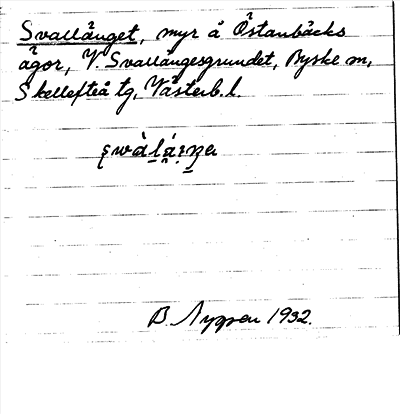 Svallänget, myr å Östanbäcks
ägor, V. Svallängesgrundet, Byske sn,
Skellefteå tg, Västerb. l.
B. Nygren 1932.